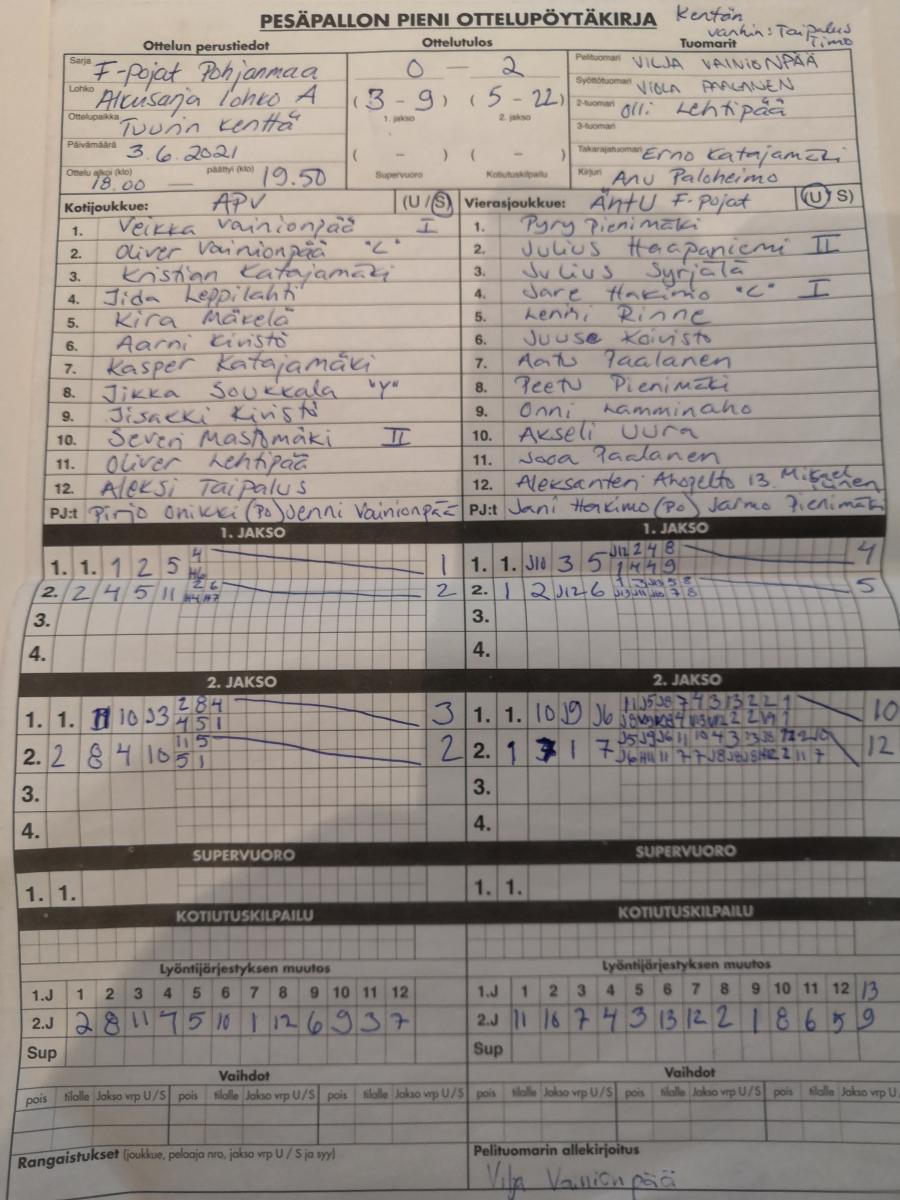 PESÄPALLON PIENI OTTELUPÖYTÄKIRJA
Kentän
vanhin: Taipalus
Timo
Ottelun perustiedot
Ottelutulos
Tuomarit
Sarja F-Pojat Pohjanmaa
Lohko Alkusarja lohko A
Ottelupaikka Tuurin kenttä
Päivämäärä 3.6.2021
Ottelu alkoi (klo) päättyi (klo)
18.00 — 19.50
0 – 2
(3 - 9) (5 - 22)
1. jakso 2. jakso
( - ) ( - )
Supervuoro Kotiutuskilpailu
Pelituomari VILJA VAINIONPÄÄ
Syöttötuomari VIOLA PAALANEN
2-tuomari Olli Lehtipää
3-tuomari
Takarajatuomari Erno Katajamäki
Kirjuri Anu Paloheimo
Kotijoukkue: APV (U / S)
1. Veikka Vainionpää I
2. Oliver Vainionpää "C"
3. Kristian Katajamäki
4. Jida Leppilahti
5. Kira Mäkelä
6. Aarni Kivistö
7. Kasper Katajamäki
8. Jikka Soukkala "Y"
9. Jisakki Kivistö
10. Severi Mastomäki II
11. Oliver Lehtipää
12. Aleksi Taipalus
PJ:t Pirjo Onikki (PO) Jenni Vainionpää
Vierasjoukkue: ÄNTU F-Pojat (U / S)
1. Pyry Pienimäki
2. Julius Haapaniemi II
3. Julius Syrjälä
4. Jare Hakimo "C" I
5. Lenni Rinne
6. Juuse Koivisto
7. Aatu Paalanen
8. Peetu Pienimäki
9. Onni Lamminaho
10. Akseli Uura
11. Jooa Paalanen
12. Aleksanteri 13. Mikael
PJ:t Jani Hakimo (PO) Jarmo Pienimäki
1. JAKSO
1. 1. 1 2 5 4 1
2. 2 4 5 11 2 6 2
3.
4.
1. JAKSO
1. 1. J10 3 5 J12 2 4 8 4
1 4 4 9
2. 1 2 J12 6 5
3.
4.
2. JAKSO
1. 1. 10 J3 2 8 4 3
4 5 1
2. 2 8 4 10 11 5 2
5 1
3.
4.
2. JAKSO
1. 1. 10 J9 J6 10
2. 1 1 7 12
3.
4.
SUPERVUORO
1. 1.
SUPERVUORO
1. 1.
KOTIUTUSKILPAILU
KOTIUTUSKILPAILU
Lyöntijärjestyksen muutos
1.J 1 2 3 4 5 6 7 8 9 10 11 12
2.J 2 8 11 4 5 10 1 12 6 9 3 7
Sup
Lyöntijärjestyksen muutos
1.J 1 2 3 4 5 6 7 8 9 10 11 12 13
2.J 11 10 7 4 3 13 12 2 1 8 6 5 9
Sup
Vaihdot
pois tilalle Jakso vrp U / S pois tilalle Jakso vrp U / S pois tilalle Jakso vrp U / S
Vaihdot
pois tilalle Jakso vrp U / S pois tilalle Jakso vrp U / S pois tilalle Jakso vrp U
Rangaistukset (joukkue, pelaaja nro, jakso vrp U / S ja syy)
Pelituomarin allekirjoitus
Vilja Vainionpää